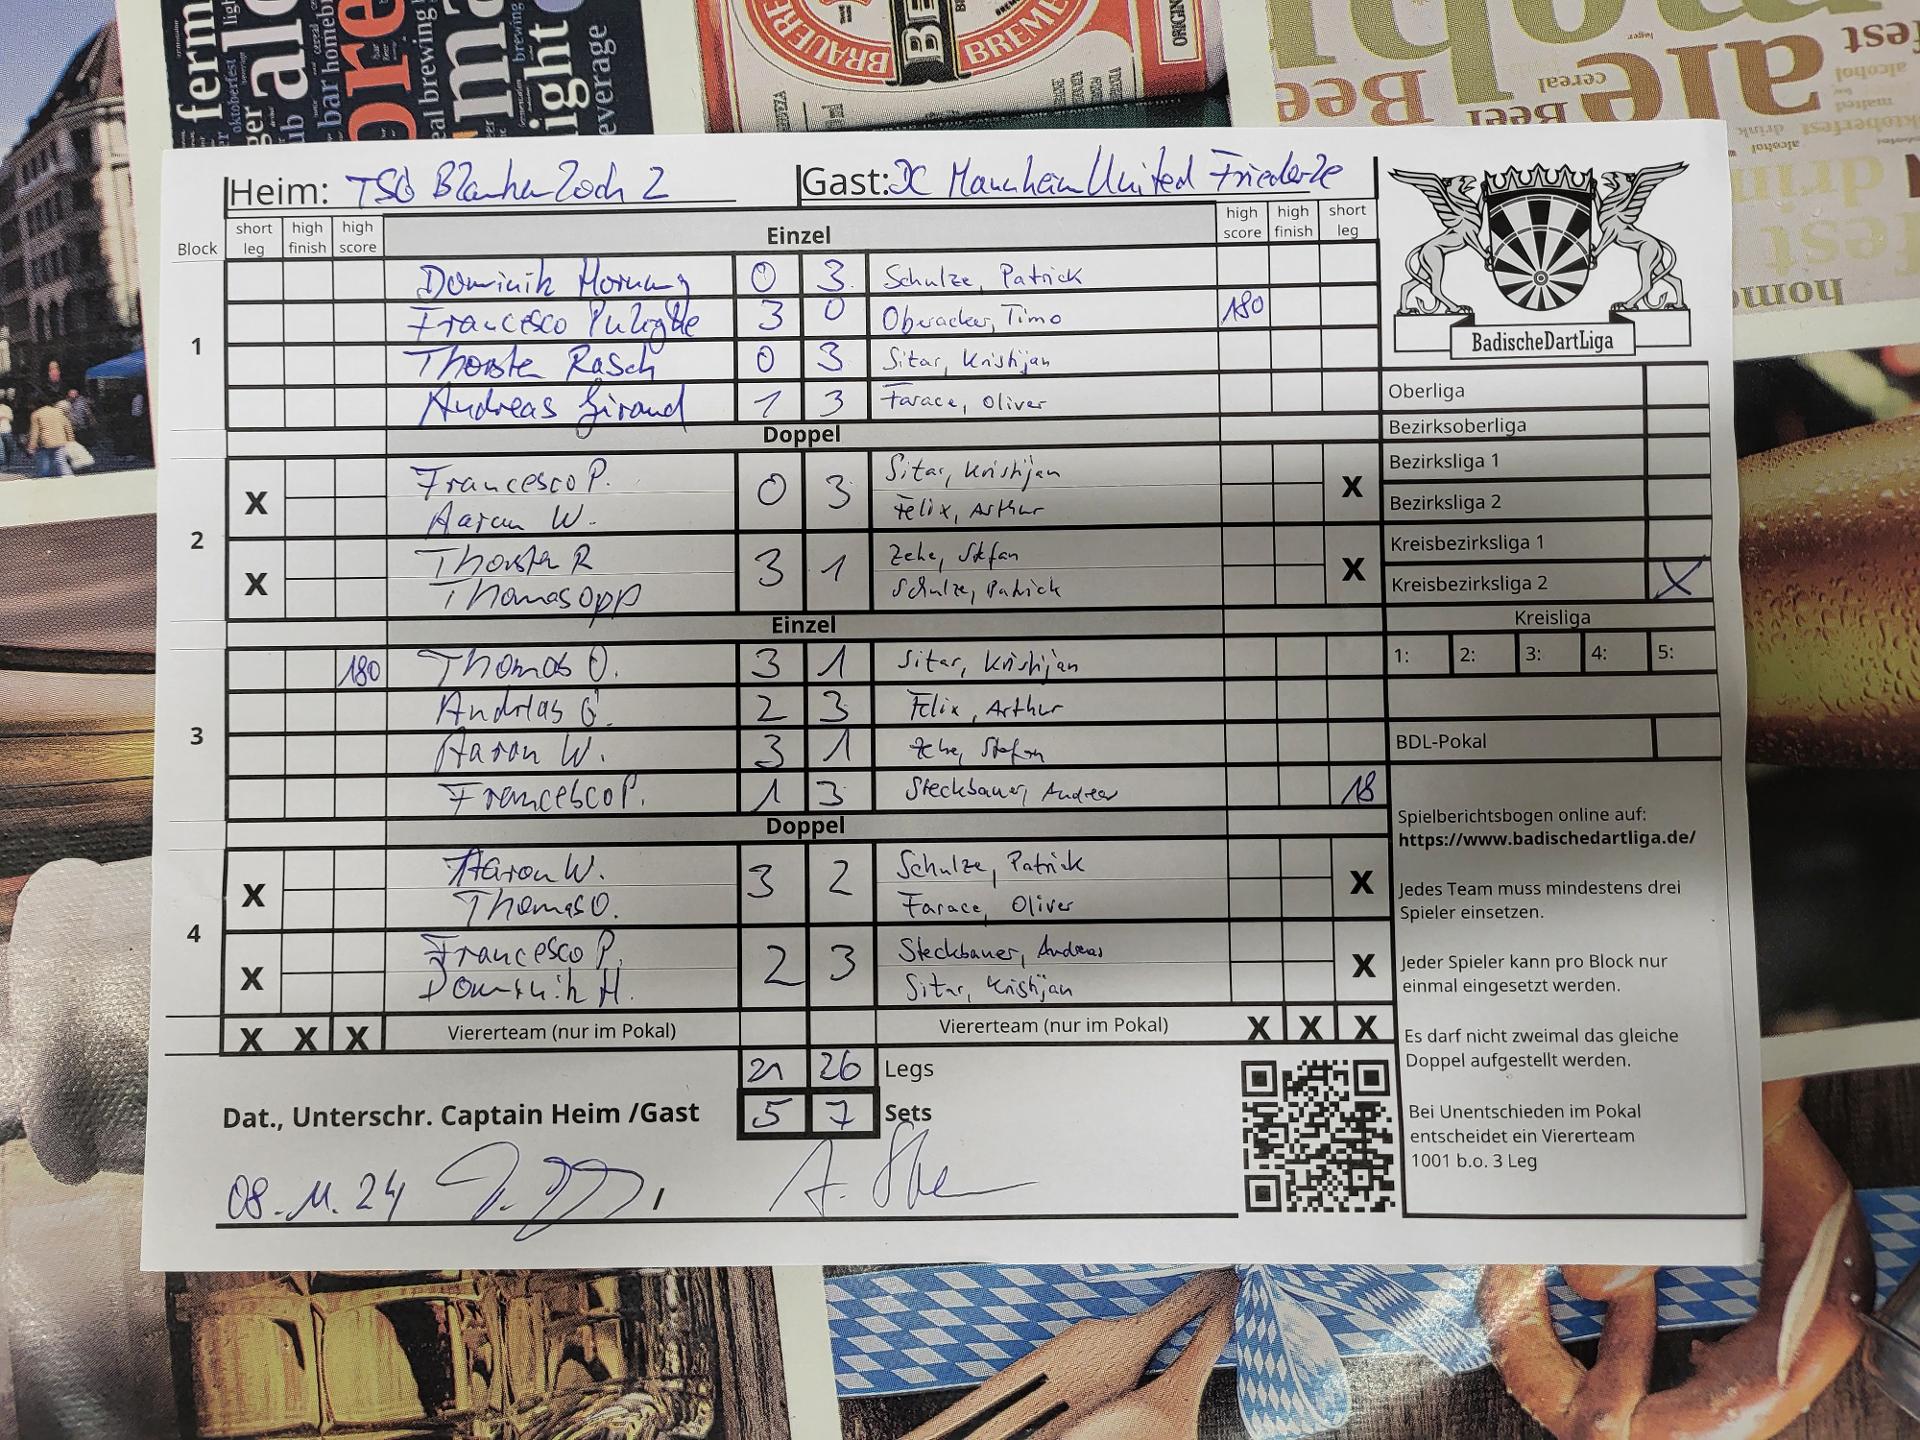 Heim: TSG Blankenloch 2 Gast: DC Mannheim United Friederize
Block short leg high finish high score Einzel high score high finish short leg
1
Dominik Hornung 0 3 Schulze, Patrick
Francesco 3 0 Oberacker, Timo 180
Thorsten Rasch 0 3 Sitar, Kristijan
Andreas Giraud 1 3 Farace, Oliver
Doppel
2
X Francesco P. 0 3 Sitar, Kristijan X
Aaron W. Felix, Arthur
X Thorsten R 3 1 Zehe, Stefan X
Thomas Opp Schulze, Patrick
Einzel
3
180 Thomas O. 3 1 Sitar, Kristijan
Andreas G. 2 3 Felix, Arthur
Aaron W. 3 1 Zehe, Stefan
Francesco P. 1 3 Steckbauer, Andreas 18
Doppel
4
X Aaron W. 3 2 Schulze, Patrick X
Thomas O. Farace, Oliver
X Francesco P. 2 3 Steckbauer, Andreas X
Dominik H. Sitar, Kristijan
X X X Viererteam (nur im Pokal) Viererteam (nur im Pokal) X X X
21 26 Legs
Dat., Unterschr. Captain Heim /Gast 5 7 Sets
08.11.24 /
BadischeDartLiga
Oberliga
Bezirksoberliga
Bezirksliga 1
Bezirksliga 2
Kreisbezirksliga 1
Kreisbezirksliga 2 X
Kreisliga
1: 2: 3: 4: 5:
BDL-Pokal
Spielberichtsbogen online auf:
https://www.badischedartliga.de/
Jedes Team muss mindestens drei
Spieler einsetzen.
Jeder Spieler kann pro Block nur
einmal eingesetzt werden.
Es darf nicht zweimal das gleiche
Doppel aufgestellt werden.
Bei Unentschieden im Pokal
entscheidet ein Viererteam
1001 b.o. 3 Leg
BRAUERE
BREME
Beer
ale
cereal
alcohol
malted
drink